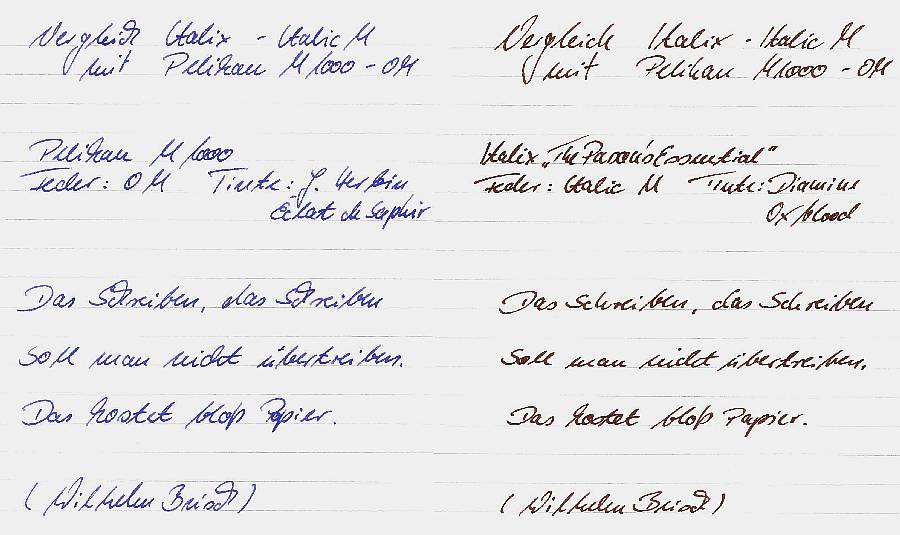 Vergleich Italix - Italic M
mit Pelikan M1000 - OM
Pelikan M 1000
Feder: OM Tinte: J. Herbin
Éclat de Saphir
Das Schreiben, das Schreiben
Soll man nicht übertreiben.
Das kostet bloß Papier.
(Wilhelm Busch)
Vergleich Italix - Italic M
mit Pelikan M1000 - OM
Italix „The Parson's Essential"
Feder: Italic M Tinte: Diamine
Oxblood
Das Schreiben, das Schreiben
Soll man nicht übertreiben.
Das kostet bloß Papier.
(Wilhelm Busch)